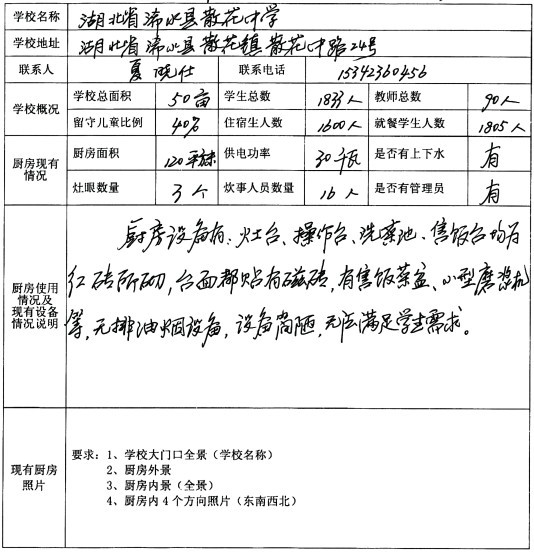 学校名称 湖北省浠水县散花中学
学校地址 湖北省浠水县散花镇散花中路24号
联系人 夏晓仕 联系电话 15342360456
学校概况
学校总面积 50亩 学生总数 1833人 教师总数 90人
留守儿童比例 40% 住宿生人数 1600人 就餐学生人数 1805人
厨房现有情况
厨房面积 120平方米 供电功率 30千瓦 是否有上下水 有
灶眼数量 3个 炊事人员数量 16人 是否有管理员 有
厨房使用
情况及
现有设备
情况说明
厨房设备有:灶台、操作台、洗漱池、售饭台均为
红砖所砌,台面都贴有磁砖,有售饭菜盆、小型磨浆机
等,无排油烟设备,设备简陋,无法满足学生需求。
现有厨房
照片
要求:1、学校大门口全景(学校名称)
2、厨房外景
3、厨房内景(全景)
4、厨房内4个方向照片(东南西北)